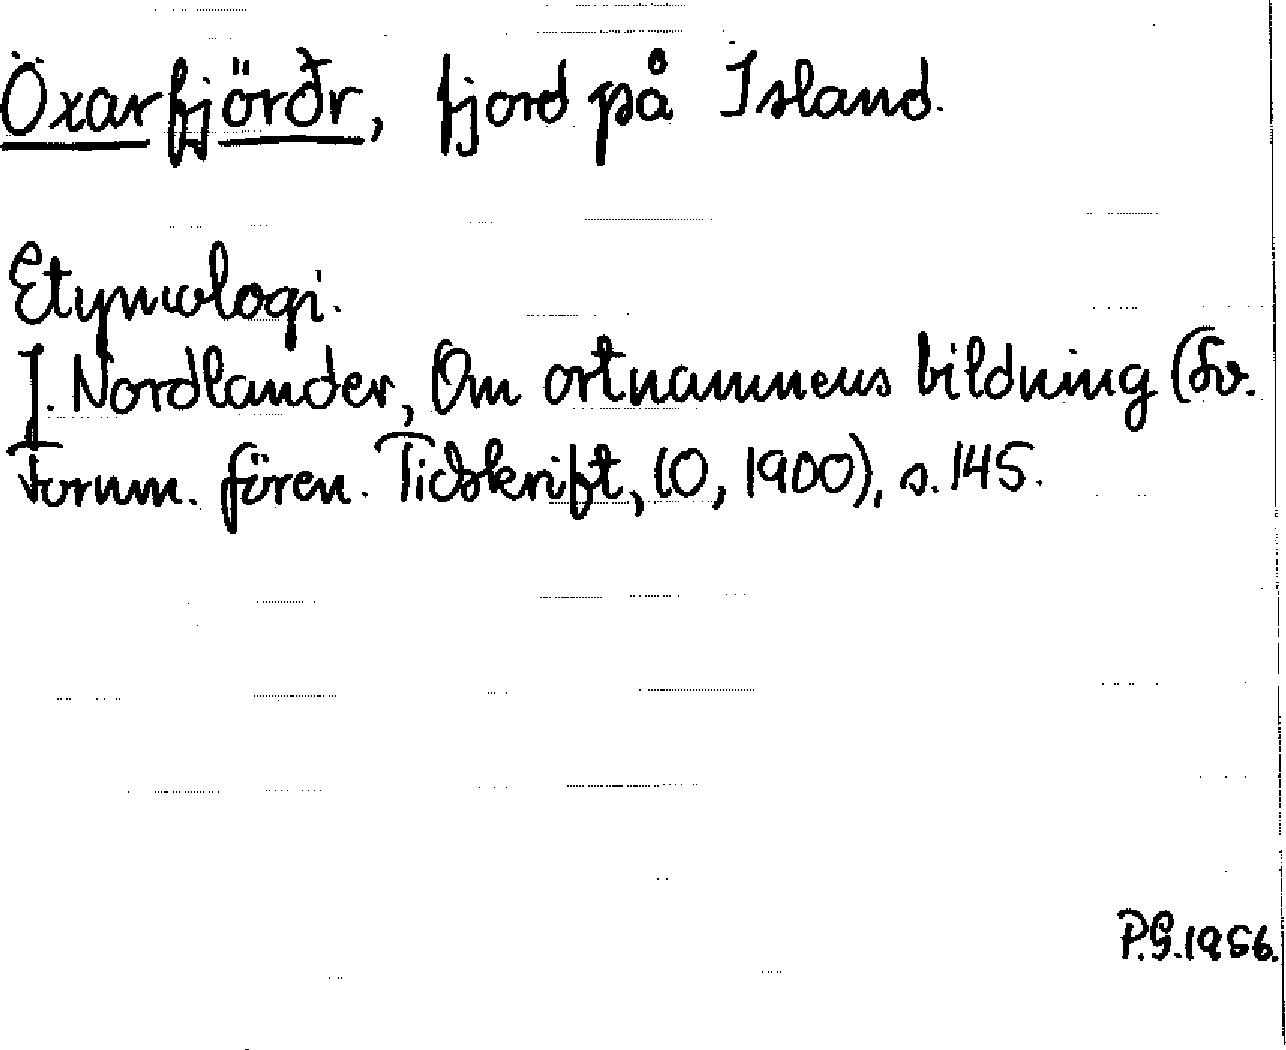 Öxarfjörðr, fjord på Island.
Etymologi.
J. Nordlander, Om ortnamnens bildning (Sv.
Fornm. fören. Tidskrift, 10, 1900), s. 145.
P.G. 1956.